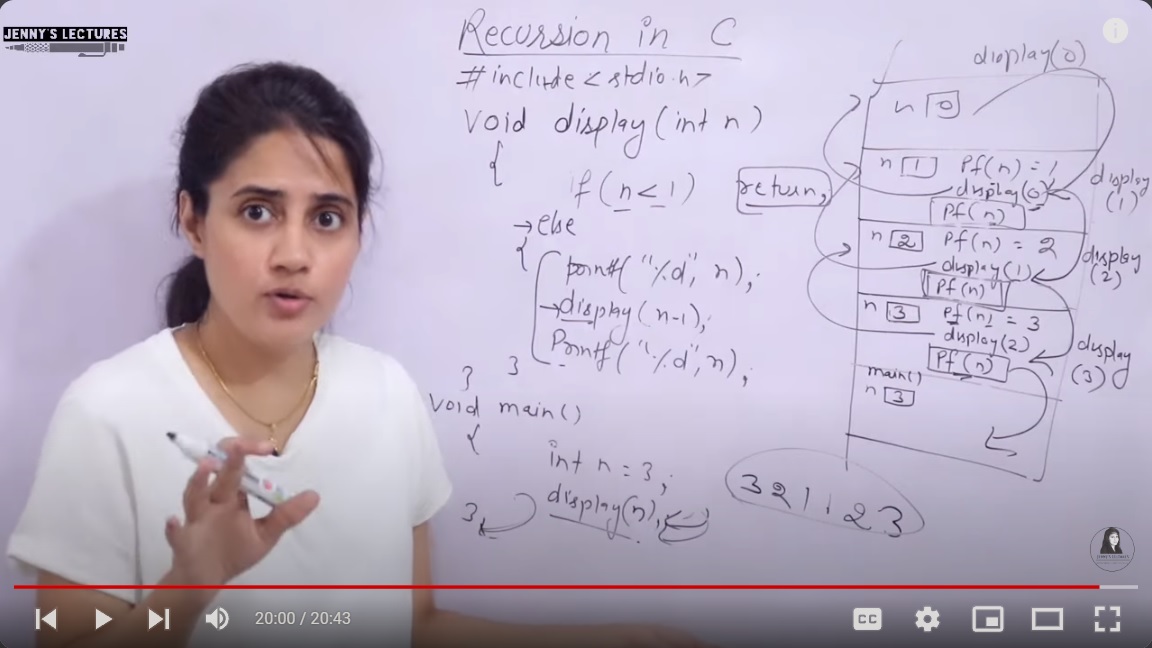 JENNY'S LECTURES
Recursion in C
#include<stdio.h>
void display(int n)
{
if(n<1) return;
→else
{
printf("%d", n);
→display(n-1);
Printf("%d", n);
}
}
void main()
{
int n = 3;
display(n);
}
display(0)
n 0
n 1 Pf(n) = 1
display(0)
Pf(n)
display
(1)
n 2 Pf(n) = 2
display(1)
Pf(n)
display
(2)
n 3 Pf(n) = 3
display(2)
Pf(n)
display
(3)
main()
n 3
321123
20:00 / 20:43
CC